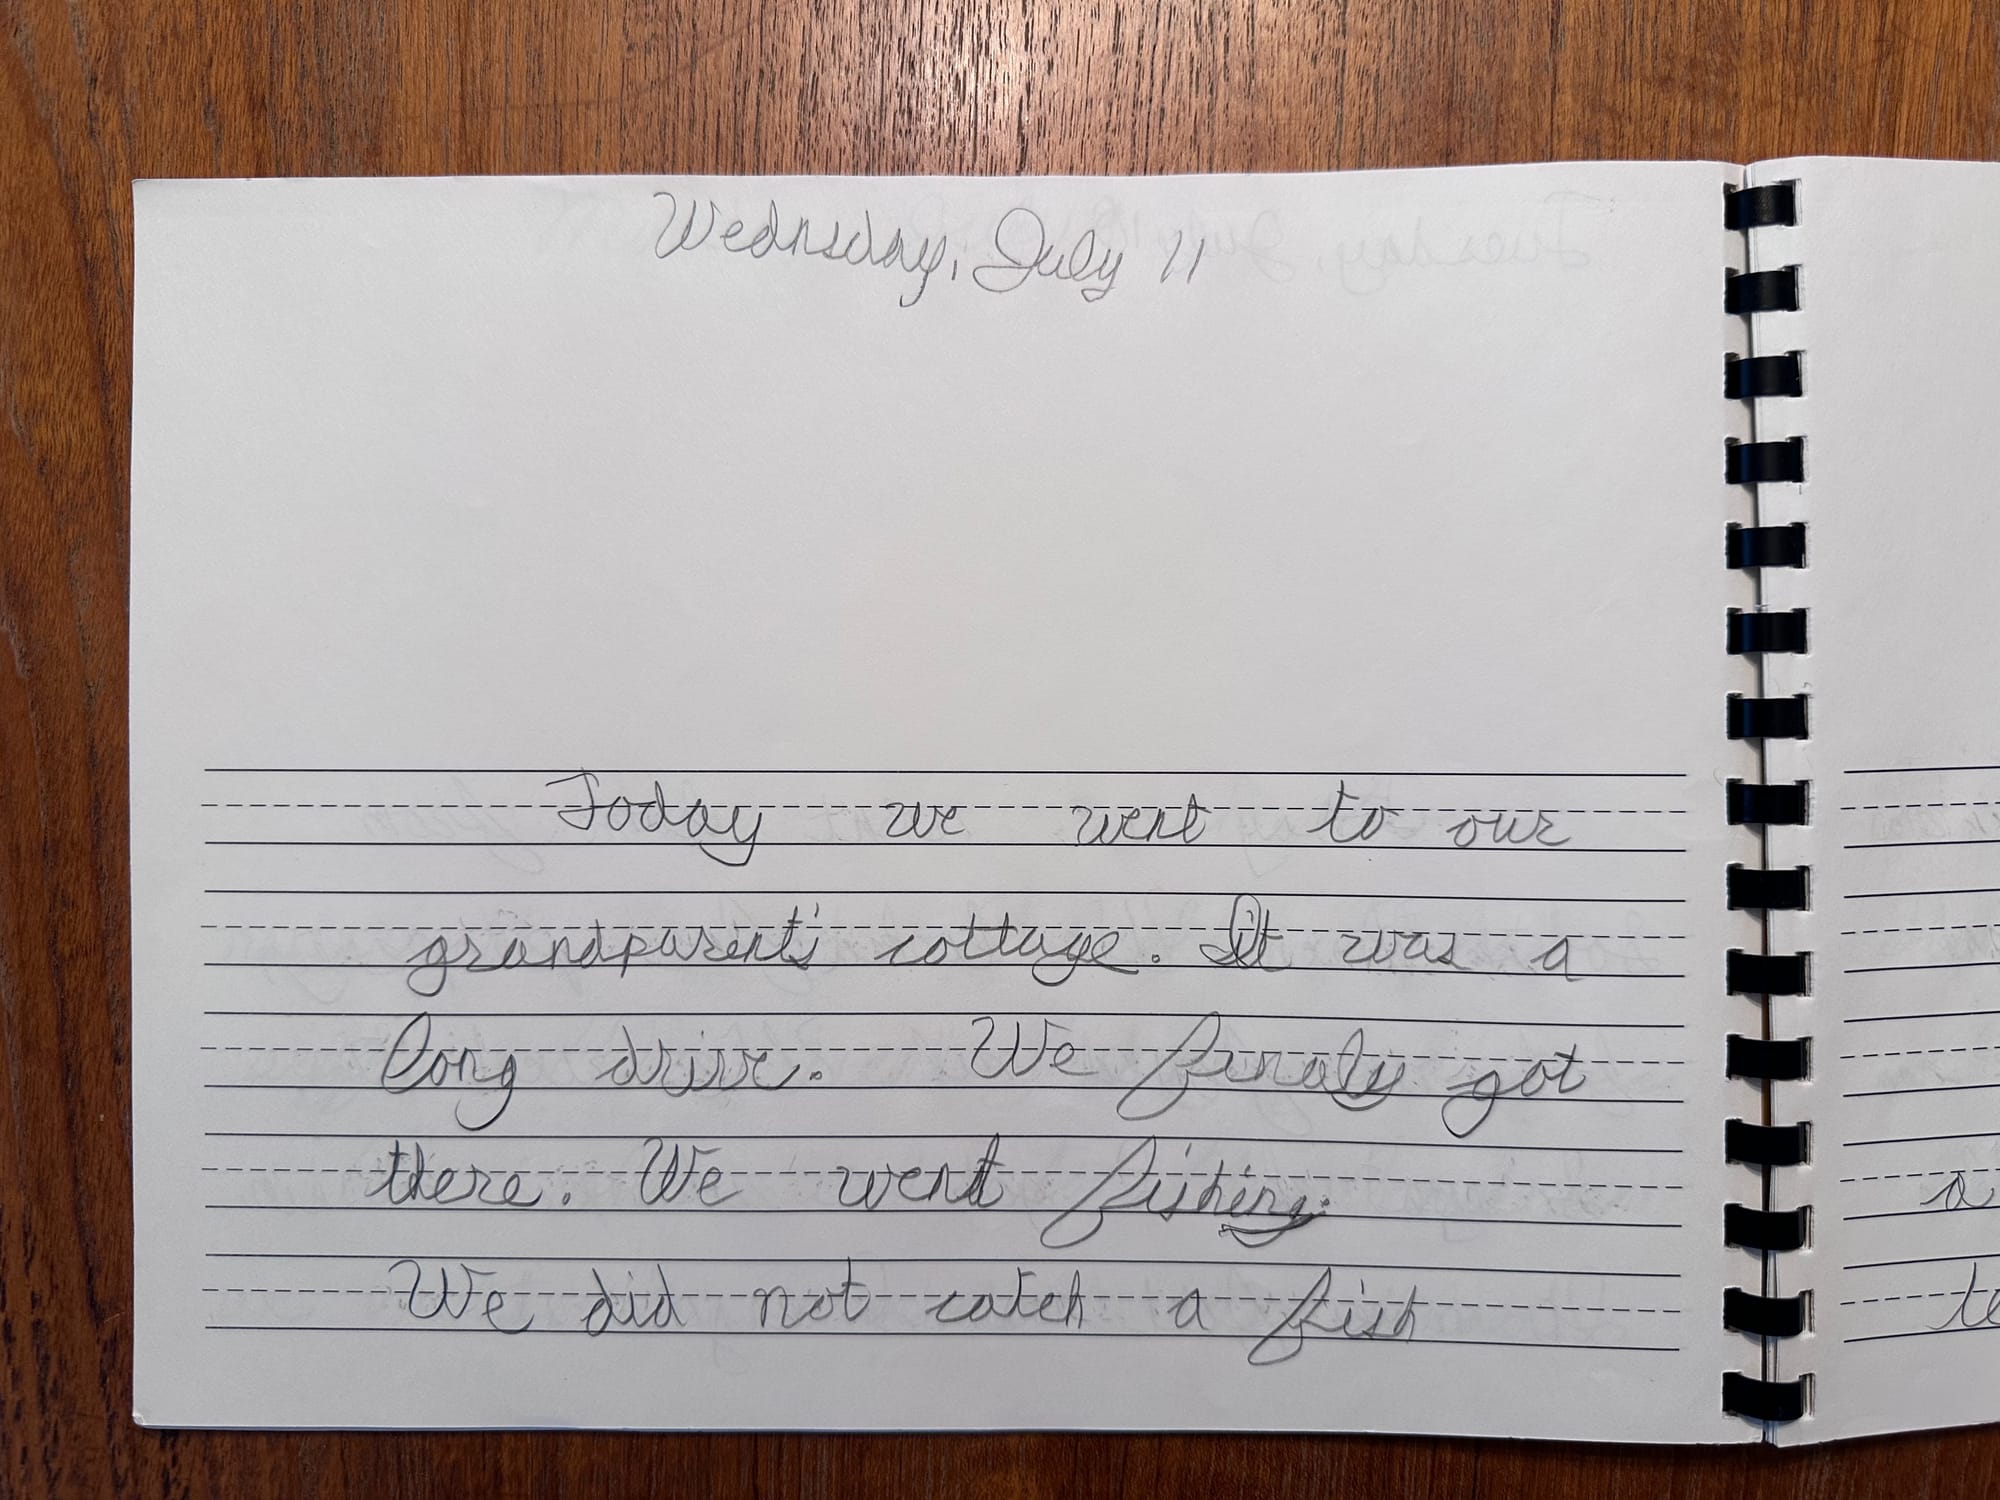 Wednesday, July 11
Today we went to our
grandparent's cottage. It was a
long drive. We finaly got
there. We went fishing.
We did not catch a fish
a
te